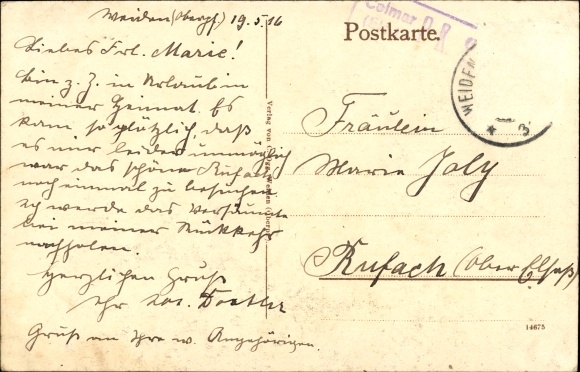 Weiden (Oberpf.) 19.5.16
Liebes Frl. Marie!
bin z. Z. in Urlaub in
meiner Heimat. Es
kam so plötzlich, daß
es mir leider unmöglich
war das schöne Rufach
noch einmal zu besuchen
ich werde das Versäumte
bei meiner Rückkehr
nachholen.
Herzlichen Gruß
Ihr
Gruß an Ihre w. Angehörigen.
Verlag von Weiden (Oberpf.)
Colmar
Postkarte.
WEIDEN
Fräulein
Marie Joly
Rufach (Ober Elsaß)
14675